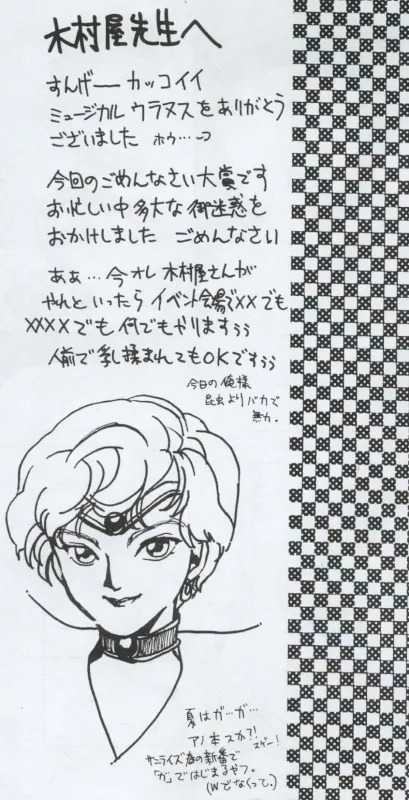 木村屋先生へ
すんげー カッコイイ
ミュージカル ウラヌスをありがとう
ございました ホゥ…
今回のごめんなさい大賞です
お忙しい中 多大な御迷惑を
おかけしました ごめんなさい
あぁ…今オレ 木村屋さんが
やれと いったら イベント会場で××でも
××××でも 何でもやりますぅぅ
人前で乳揉まれてもOKですぅぅ
今日の俺様
昆虫よりバカで
無力.
夏はガ…ガ…
アノ本スか?!
スゲー!
サンライズ春の新番で
「ガ」ではじまるやつ。
(Wでなくって。)